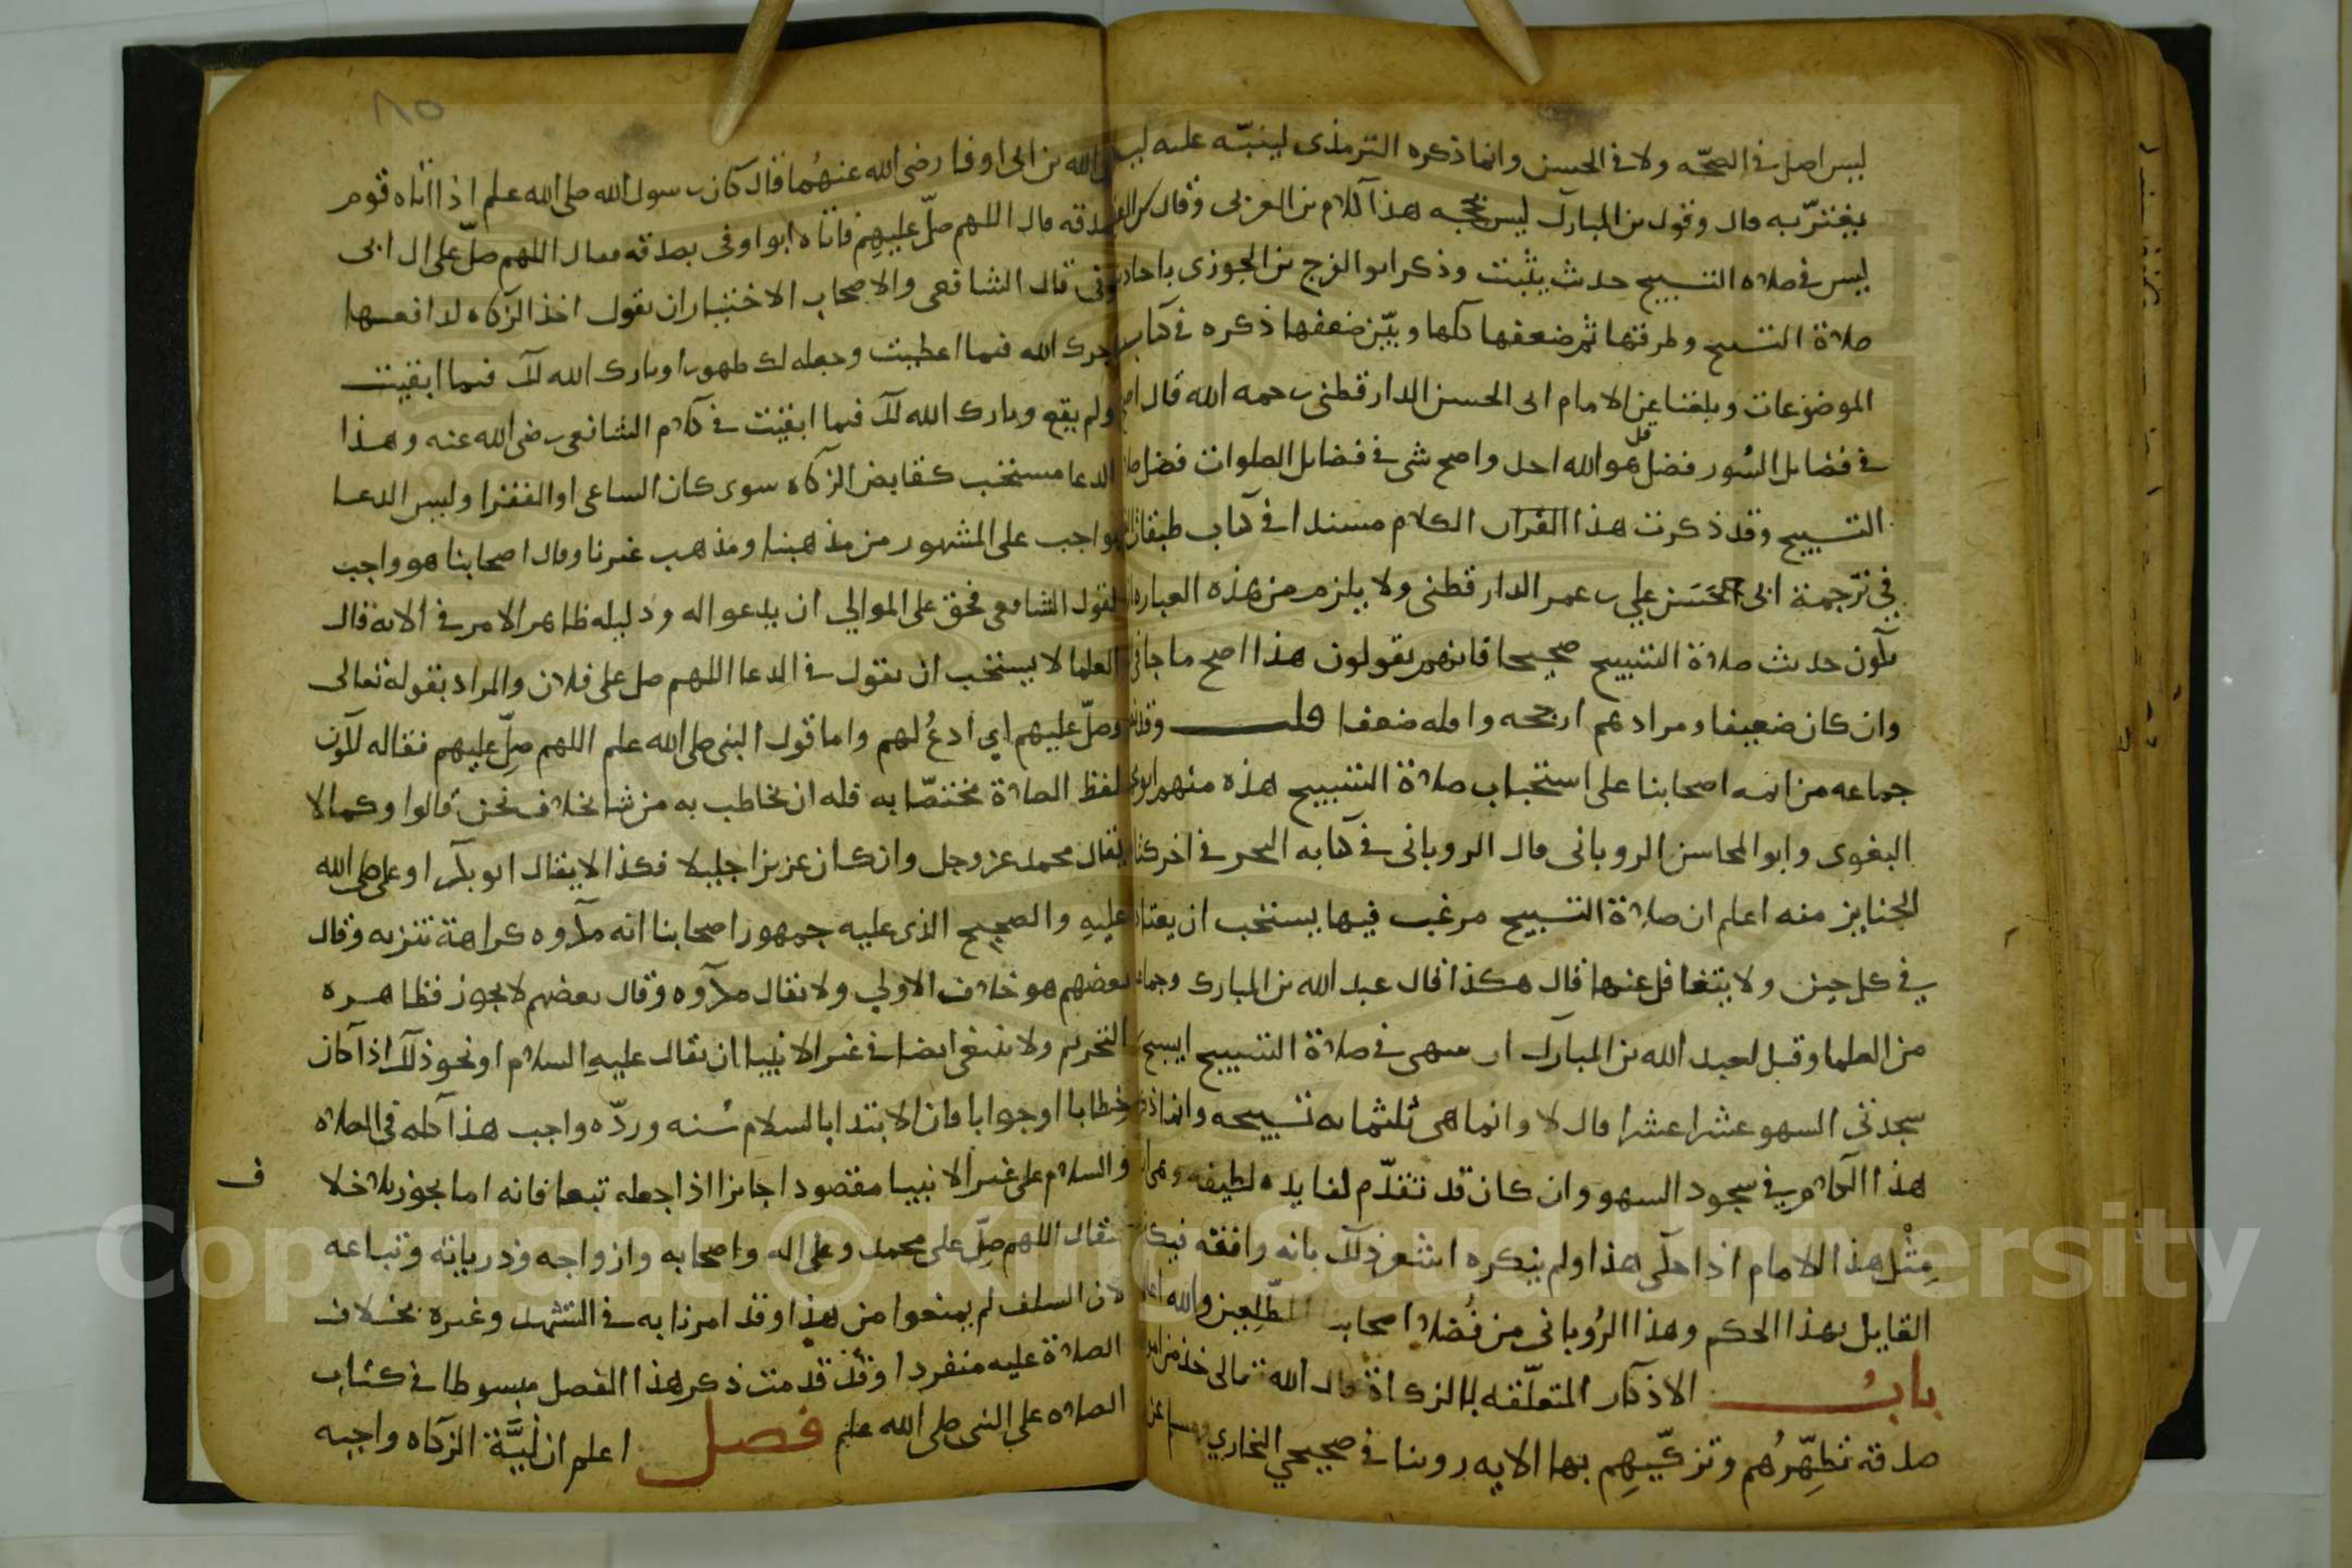 ليس اصل في الصحّه ولا في الحسن وانما ذكره الترمذى لينبّه عليه ليلا
يغترّ به قال وقول بن المبارك ليس بحجه هذا كلام بن العربى وقال
ليس في صلاه التسبيح حديث يثبت وذكر ابو الفرج بن الجوزى باحاديث
صلاة التسبيح وطرقها ثم ضعفها كلها وبيّن ضعفها ذكره في كتاب
الموضوعات وبلغنا عن الامام ابى الحسن الدارقطنى رحمه الله قال اصح
في فضايل السُور فضل قل هو الله احد واصح شى في فضايل الصلوات فضل
التسبيح وقد ذكرت هذا القران الكلام مسندا في كتاب طبقات
في ترجمة ابى الحَسَن علي بن عمر الدارقطنى ولا يلزم من هذه العباره
يكون حديث صلاة التسبيح صحيحا فانهم يقولون هذا اصح ما جا في
وان كان ضعيفا ومرادهم ارجحه واقله ضعفا قلت
جماعه من ايمه اصحابنا على استحباب صلاة التسبيح هذه منهم ابو
البغوى وابو المحاسن الرويانى قال الرويانى في كتابه البحر في اخر كتاب
الجنايز منه اعلم ان صلاة التسبيح مرغب فيها يستحب ان يعتاد
في كل حين ولا يتغافل عنها قال هكذا قال عبد الله بن المبارك وجماعه
من العلما وقيل لعبد الله بن المبارك ان سهى في صلاة التسبيح ايسبح
سجدتي السهو عشرا عشرا قال لا وانما هى ثلثمايه تسبيحه وانما
هذا الكلام في سجود السهو وان كان قد تقدّم لفايده لطيفه وهى
مِثْل هذا الامام اذا حكى هذا ولم ينكره اشعر ذلك بانه وافقه
القايل بهذا الحكم وهذا الرُويانى من فُضلا اصحابنا المطّلعين والله اعلم
بابُ الاذكار المتعلّقه بالزكاة قال الله تعالى خذ من
صدقه تُطهّرُهم وتزكّيهِم بها الايه روينا في صحيحي البخاري ومسلم عن
الله بن ابى اوفا رضى الله عنهُما قال كان رسول الله صلى الله علم اذا اتاه قوم
بصدقه قال اللهم صلّ عليهِم فاتاه ابو اوفى بصدقه فقال اللهم صلّ على ال ابى
اوفى قال الشافعى والاصحاب الاختيار ان يقول اخذ الزكاه لدافعها
اجرك الله فيما اعطيت وجعله لك طهورا وبارك الله لك فيما ابقيت
ولم يقع وبارك الله لك فيما ابقيت في كلام الشافعى رضى الله عنه وهذا
الدعا مستحب كقابض الزكاه سوى كان الساعى او الفقرا وليس الدعا
بواجب على المشهور من مذهبنا ومذهب غيرنا وقال اصحابنا هو واجب
لقول الشافعى فحق على الموالي ان يدعو له ودليله ظاهر الامر في الايه قال
العلما لا يستحب ان يقول في الدعا اللهم صل على فلان والمراد بقوله تعالى
وصلّ عليهم اي ادعُ لهم واما قول النبى صلى الله علم اللهم صلّ عليهم فقاله لكون
لفظ الصلاة مختصّا به فله ان يخاطب به من شا بخلاف نحن قالوا وكما لا
يقال محمد عز وجل وان كان عزيزا جليلا فكذا لا يقال ابو بكر او على صلى الله
عليه والصحيح الذى عليه جمهور اصحابنا انه مكروه كراهة تنزيه وقال
بعضهم هو خلاف الاولي ولا يقال مكروه وقال بعضهم لا يجوز فظاهره
التحريم ولا ينبغى ايضا في غير الانبيا ان يقال عليه السلام او نحو ذلك اذا كان
خطابا او جوابا فان الابتدا بالسلام سُنه وردّه واجب هذا كله في الصلاه
والسلام على غير الانبيا مقصودا جايزا اذا جعله تبعا فانه اما يجوز بلا خلا
ف
فيقال اللهم صلّ على محمد وعلى اله واصحابه وازواجه وذرياته وتباعه
لان السلف لم يمنعوا من هذا وقد امرنا به في التشهد وغيره بخلاف
الصلاة عليه منفردا وقد قدمت ذكر هذا الفصل مبسوطا في كتاب
الصلاه علي النبى صلى الله علم فصل اعلم ان نيَّة الزكاه واجبه
Copyright © King Saud University